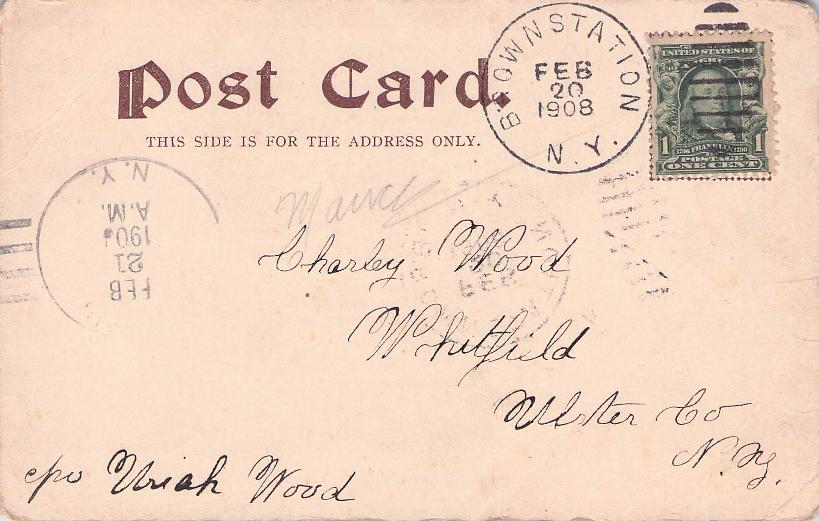 Post Card.
THIS SIDE IS FOR THE ADDRESS ONLY.
BROWN STATION
FEB
20
1908
N.Y.
UNITED STATES OF AMERICA
1 1
FRANKLIN
POSTAGE
ONE CENT
FEB
21
190
A.M.
N.Y.
FEB
Charley Wood
Whitfield
Ulster Co
N.Y.
c/o Uriah Wood